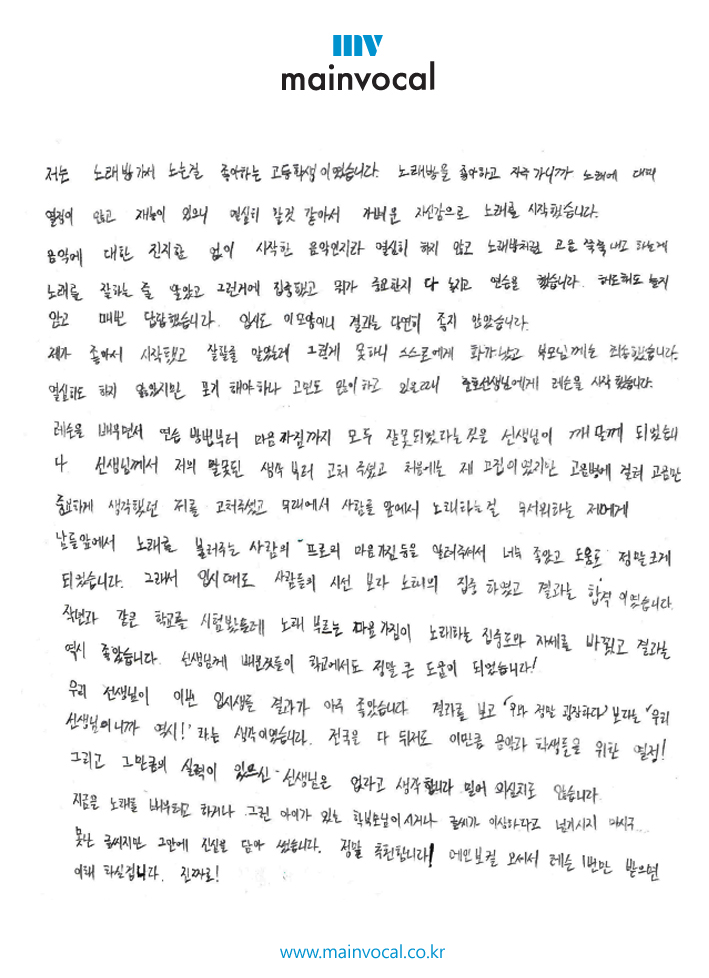 mv
mainvocal
저는 노래방가서 노는걸 좋아하는 고등학생이였습니다. 노래방을 좋아하고 자주 가니까 노래에 대해
열정이 많고 재능이 있으니 열심히 할것 같아서 가벼운 자신감으로 노래를 시작했습니다.
음악에 대한 진지함 없이 시작한 음악인지라 열심히 하지 않고 노래방처럼 고음 쭉쭉 내고 하는게
노래를 잘하는 줄 알았고 그런거에 집중했고 뭐가 중요한지 다 놓치고 연습을 했습니다. 해도해도 늘지
않고 매번 답답했습니다. 입시도 이모양이니 결과는 당연히 좋지 않았습니다.
제가 좋아서 시작했고 잘할줄 알았는데 그렇게 못하니 스스로에게 화가났고 부모님께는 죄송했습니다.
열심히도 하지 않았지만 포기 해야하나 고민도 많이하고 있을때 선생님에게 레슨을 시작했습니다.
레슨을 배우면서 연습 방법부터 마음가짐까지 모두 잘못되었다라는 것을 선생님이 깨닫게 되었습니
다. 선생님께서 저의 잘못된 생각부터 고쳐주셨고 처음에는 제 고집이였지만 고음병에 걸려 고음만
중요하게 생각했던 저를 고쳐주셨고 무대에서 사람들 앞에서 노래하는걸 무서워하는 저에게
남들앞에서 노래를 불러주는 사람의 프로의 마음가짐 등을 알려주셔서 너무 좋았고 도움도 정말크게
되었습니다. 그래서 입시때도 사람들의 시선 보다 노래의 집중 하였고 결과는 합격이였습니다.
작년과 같은 학교를 시험봤는데 노래 부르는 마음가짐이 노래하는 집중도와 자세를 바꿨고 결과는
역시 좋았습니다. 선생님께 배운것들이 학교에서도 정말 큰 도움이 되었습니다!
우리 선생님이 이번 입시생들 결과가 아주 좋았습니다. 결과를 보고 '우와 정말 굉장하다' 보다는 '우리
선생님이니까 역시!' 라는 생각이였습니다. 전국을 다 뒤져도 이만큼 음악과 학생들을 위한 열정!
그리고 그만큼의 실력이 있으신 선생님은 없다고 생각합니다 믿어 의심치도 않습니다.
지금은 노래를 배우려고 하거나 그런 아이가 있는 학부모님이시거나 글씨가 이상하다고 넘기시지 마시구..
못난 글씨지만 그안에 진심을 담아 썼습니다. 정말 추천합니다! 메인보컬 오셔서 레슨 1번만 받으면
이해 하실겁니다. 진짜로!
www.mainvocal.co.kr